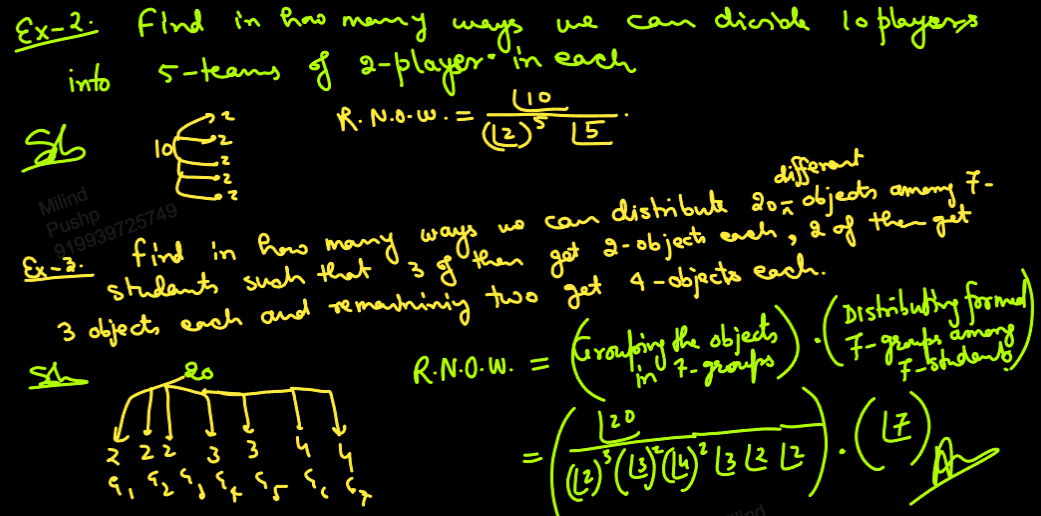 Ex-2. Find in how many ways we can divide 10 players
into 5-teams of 2-player in each
Sol
10 2 2 2 2 2
R.N.O.W. = ⌊10 / (⌊2)^5 ⌊5 .
Milind
Pushp
919939725749
Ex-3. find in how many ways we can distribute 20 different objects among 7-
students such that 3 of them get 2-objects each, 2 of them get
3 objects each and remaining two get 4-objects each.
Sol
20
2 2 2 3 3 4 4
G1 G2 G3 G4 G5 G6 G7
R.N.O.W. = (Grouping the objects in 7-groups) . (Distributing formed 7-groups among 7-students)
= (⌊20 / (⌊2)^3 (⌊3)^2 (⌊4)^2 ⌊3 ⌊2 ⌊2) . (⌊7) Ans